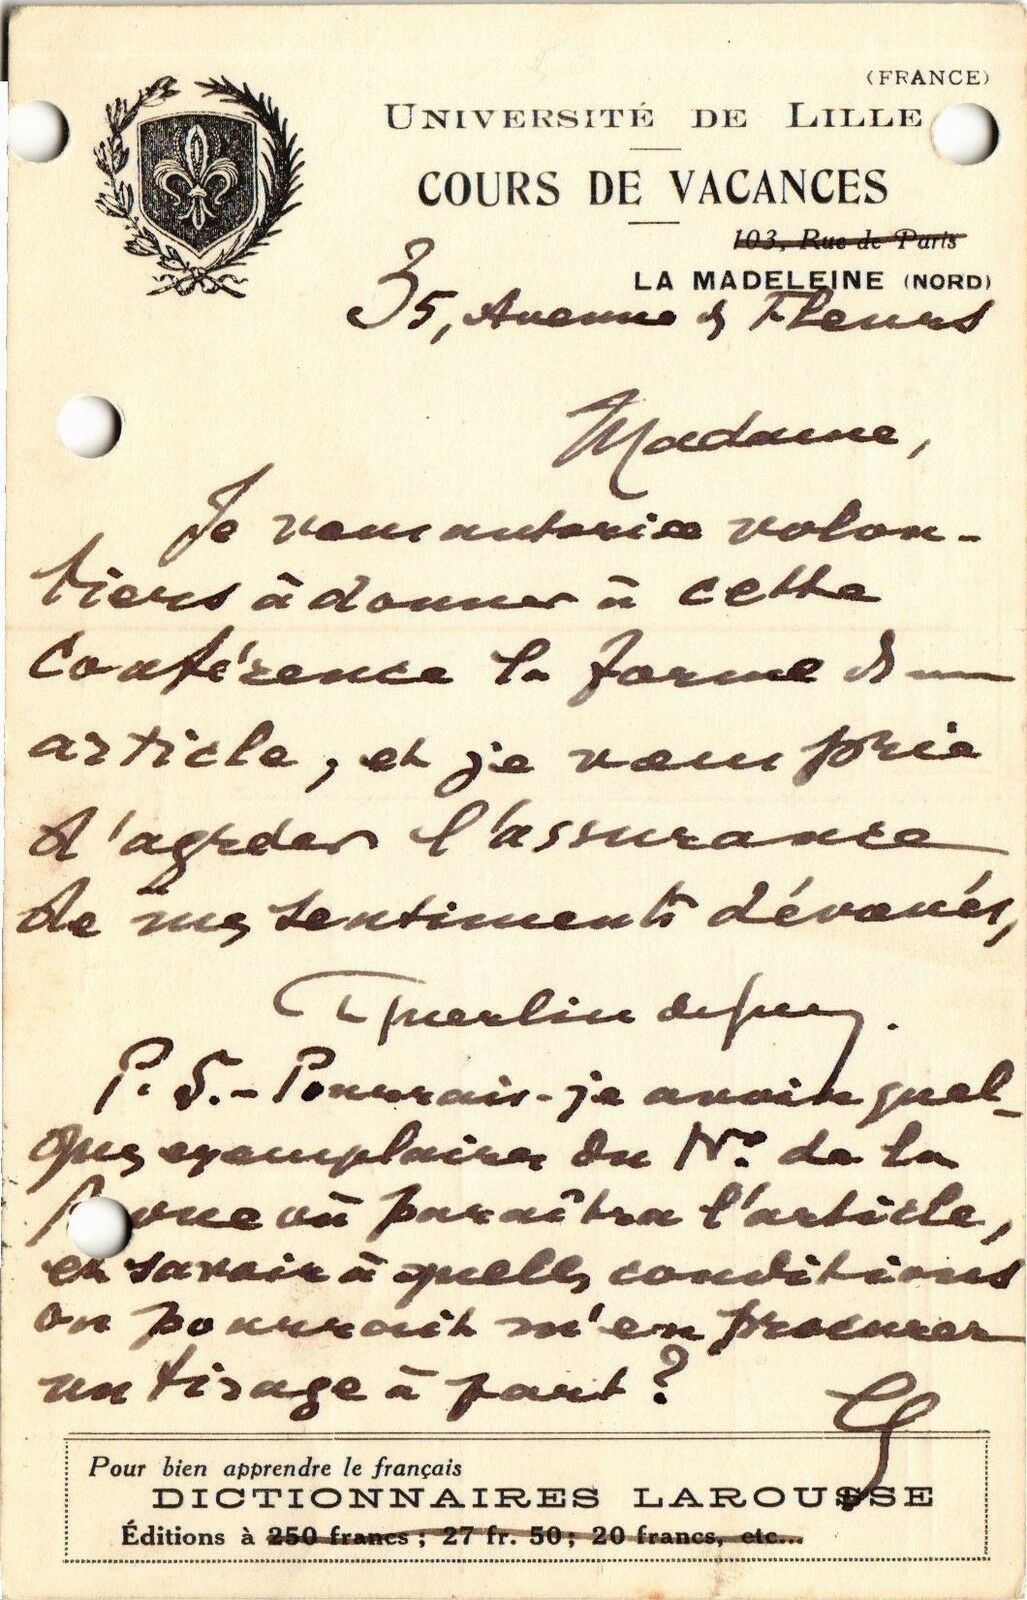 (FRANCE)
UNIVERSITÉ DE LILLE
COURS DE VACANCES
103, Rue de Paris
LA MADELEINE (NORD)
35, Avenue ds Fleurs
Madame,
Je vous autorise volon-
tiers à donner à cette
conférence la forme d'un
article, et je vous prie
d'agréer l'assurance
de mes sentiments dévoués,
P. S. - Pourrais-je avoir quel-
ques exemplaires du N° de la
Revue où paraîtra l'article,
et savoir à quelles conditions
on pourrait m'en procurer
un tirage à part ?
Pour bien apprendre le français
DICTIONNAIRES LAROUSSE
Éditions à 250 francs ; 27 fr. 50 ; 20 francs, etc...